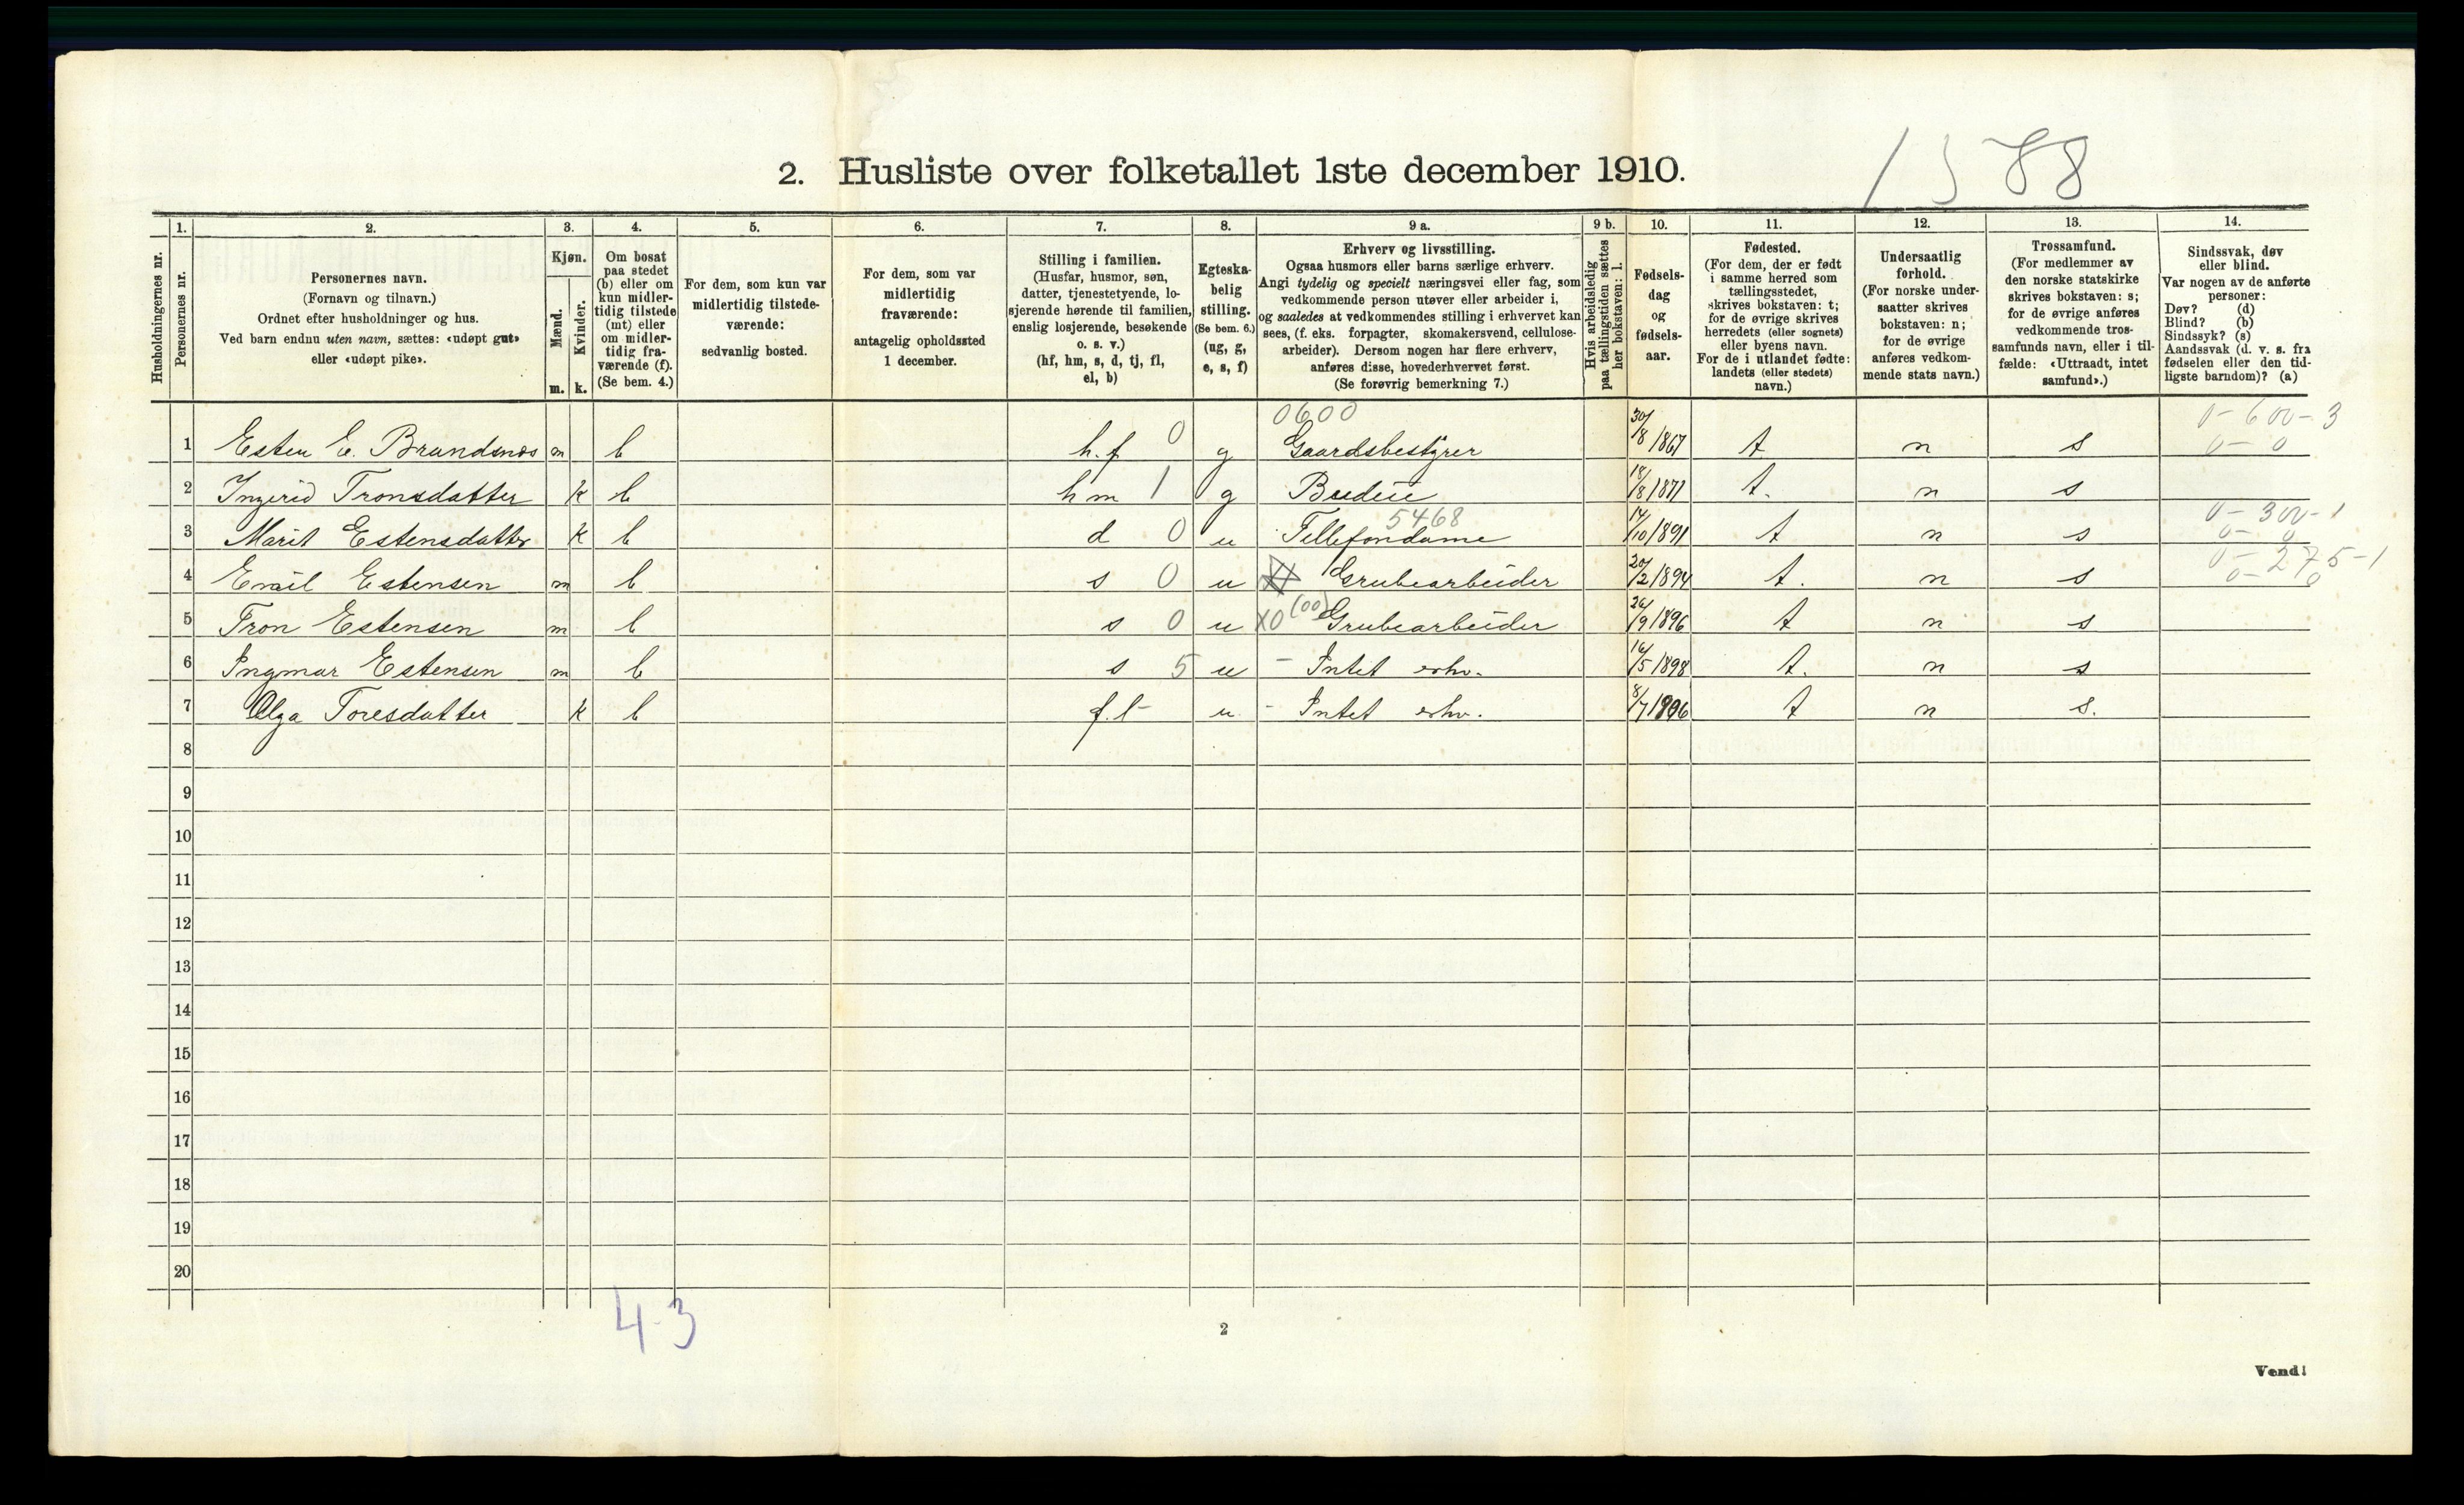 1588
2. Husliste over folketallet 1ste december 1910.
Husholdningernes nr.
1.
Personernes nr.
2.
Personernes navn.
(Fornavn og tilnavn.)
Ordnet efter husholdninger og hus.
Ved barn endnu uten navn, sættes: «udøpt gut»
eller «udøpt pike».
3.
Kjøn.
Mænd.
Kvinder.
m. k.
4.
Om bosat
paa stedet
(b) eller om
kun midler-
tidig tilstede
(mt) eller
om midler-
tidig fra-
værende (f).
(Se bem. 4.)
5.
For dem, som kun var
midlertidig tilstede-
værende:
sedvanlig bosted.
6.
For dem, som var
midlertidig
fraværende:
antagelig opholdssted
1 december.
7.
Stilling i familien.
(Husfar, husmor, søn,
datter, tjenestetyende, lo-
sjerende hørende til familien,
enslig losjerende, besøkende
o. s. v.)
(hf, hm, s, d, tj, fl,
el, b)
8.
Egteska-
belig
stilling.
(Se bem. 6.)
(ug, g,
e, s, f)
9 a.
Erhverv og livsstilling.
Ogsaa husmors eller barns særlige erhverv.
Angi tydelig og specielt næringsvei eller fag, som
vedkommende person utøver eller arbeider i,
og saaledes at vedkommendes stilling i erhvervet kan
sees, (f. eks. forpagter, skomakersvend, cellulose-
arbeider). Dersom nogen har flere erhverv,
anføres disse, hovederhvervet først.
(Se forøvrig bemerkning 7.)
9 b.
Hvis arbeidsledig
paa tællingstiden sættes
her bokstaven: l.
10.
Fødsels-
dag
og
fødsels-
aar.
11.
Fødested.
(For dem, der er født
i samme herred som
tællingsstedet,
skrives bokstaven: t;
for de øvrige skrives
herredets (eller sognets)
eller byens navn.
For de i utlandet fødte:
landets (eller stedets)
navn.)
12.
Undersaatlig
forhold.
(For norske under-
saatter skrives
bokstaven: n;
for de øvrige
anføres vedkom-
mende stats navn.)
13.
Trossamfund.
(For medlemmer av
den norske statskirke
skrives bokstaven: s;
for de øvrige anføres
vedkommende tros-
samfunds navn, eller i til-
fælde: «Uttraadt, intet
samfund».)
14.
Sindssvak, døv
eller blind.
Var nogen av de anførte
personer:
Døv? (d)
Blind? (b)
Sindssyk? (s)
Aandssvak (d. v. s. fra
fødselen eller den tid-
ligste barndom)? (a)
0600 0-600-3
1 Esten E. Brandsnes m b h.f 0 g Gaardsbestyrer 30/8 1867 t n s 0-0
2 Ingerid Tronsdatter k b hm 1 g Budeie 18/8 1871 t. n s
5468 0-300-1
3 Marit Estensdatter k b d 0 u Tellefondame 14/10 1891 t n s 0-0
0-275-1
4 Emil Estensen m b s 0 u Grubearbeider 20/2 1894 t. n s 0-0
5 Tron Estensen m b s 0 u X0 (00) Grubearbeider 26/9 1896 t n s
6 Ingmar Estensen m b s 5 u - Intet erhv. 16/5 1898 t. n s
7 Olga Toresdatter k b f.l- u - Intet erhv. 8/7 1906 t n s.
8
9
10
11
12
13
14
15
16
17
18
19
20
4-3
2
Vend!